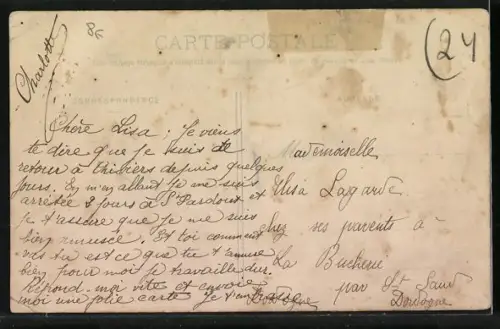 8f
(24
CARTE POSTALE
CORRESPONDANCE
Charlotte
Chère Lisa ; Je viens
te dire que je suis de
retour à Thiviers depuis quelques
jours. En m'en allant je me suis
arrêtée 8 jours à St Pardoux et
je t'assure que je me suis
bien amusée. Et toi comment
vas tu est ce que tu t'amuse
bien pour moi je travaille dur.
Répond-moi vite et envoie
moi une jolie carte Je t'
Mademoiselle
Elisa Lagarde
chez ses parents à
La
par St
Dordogne
Dordogne